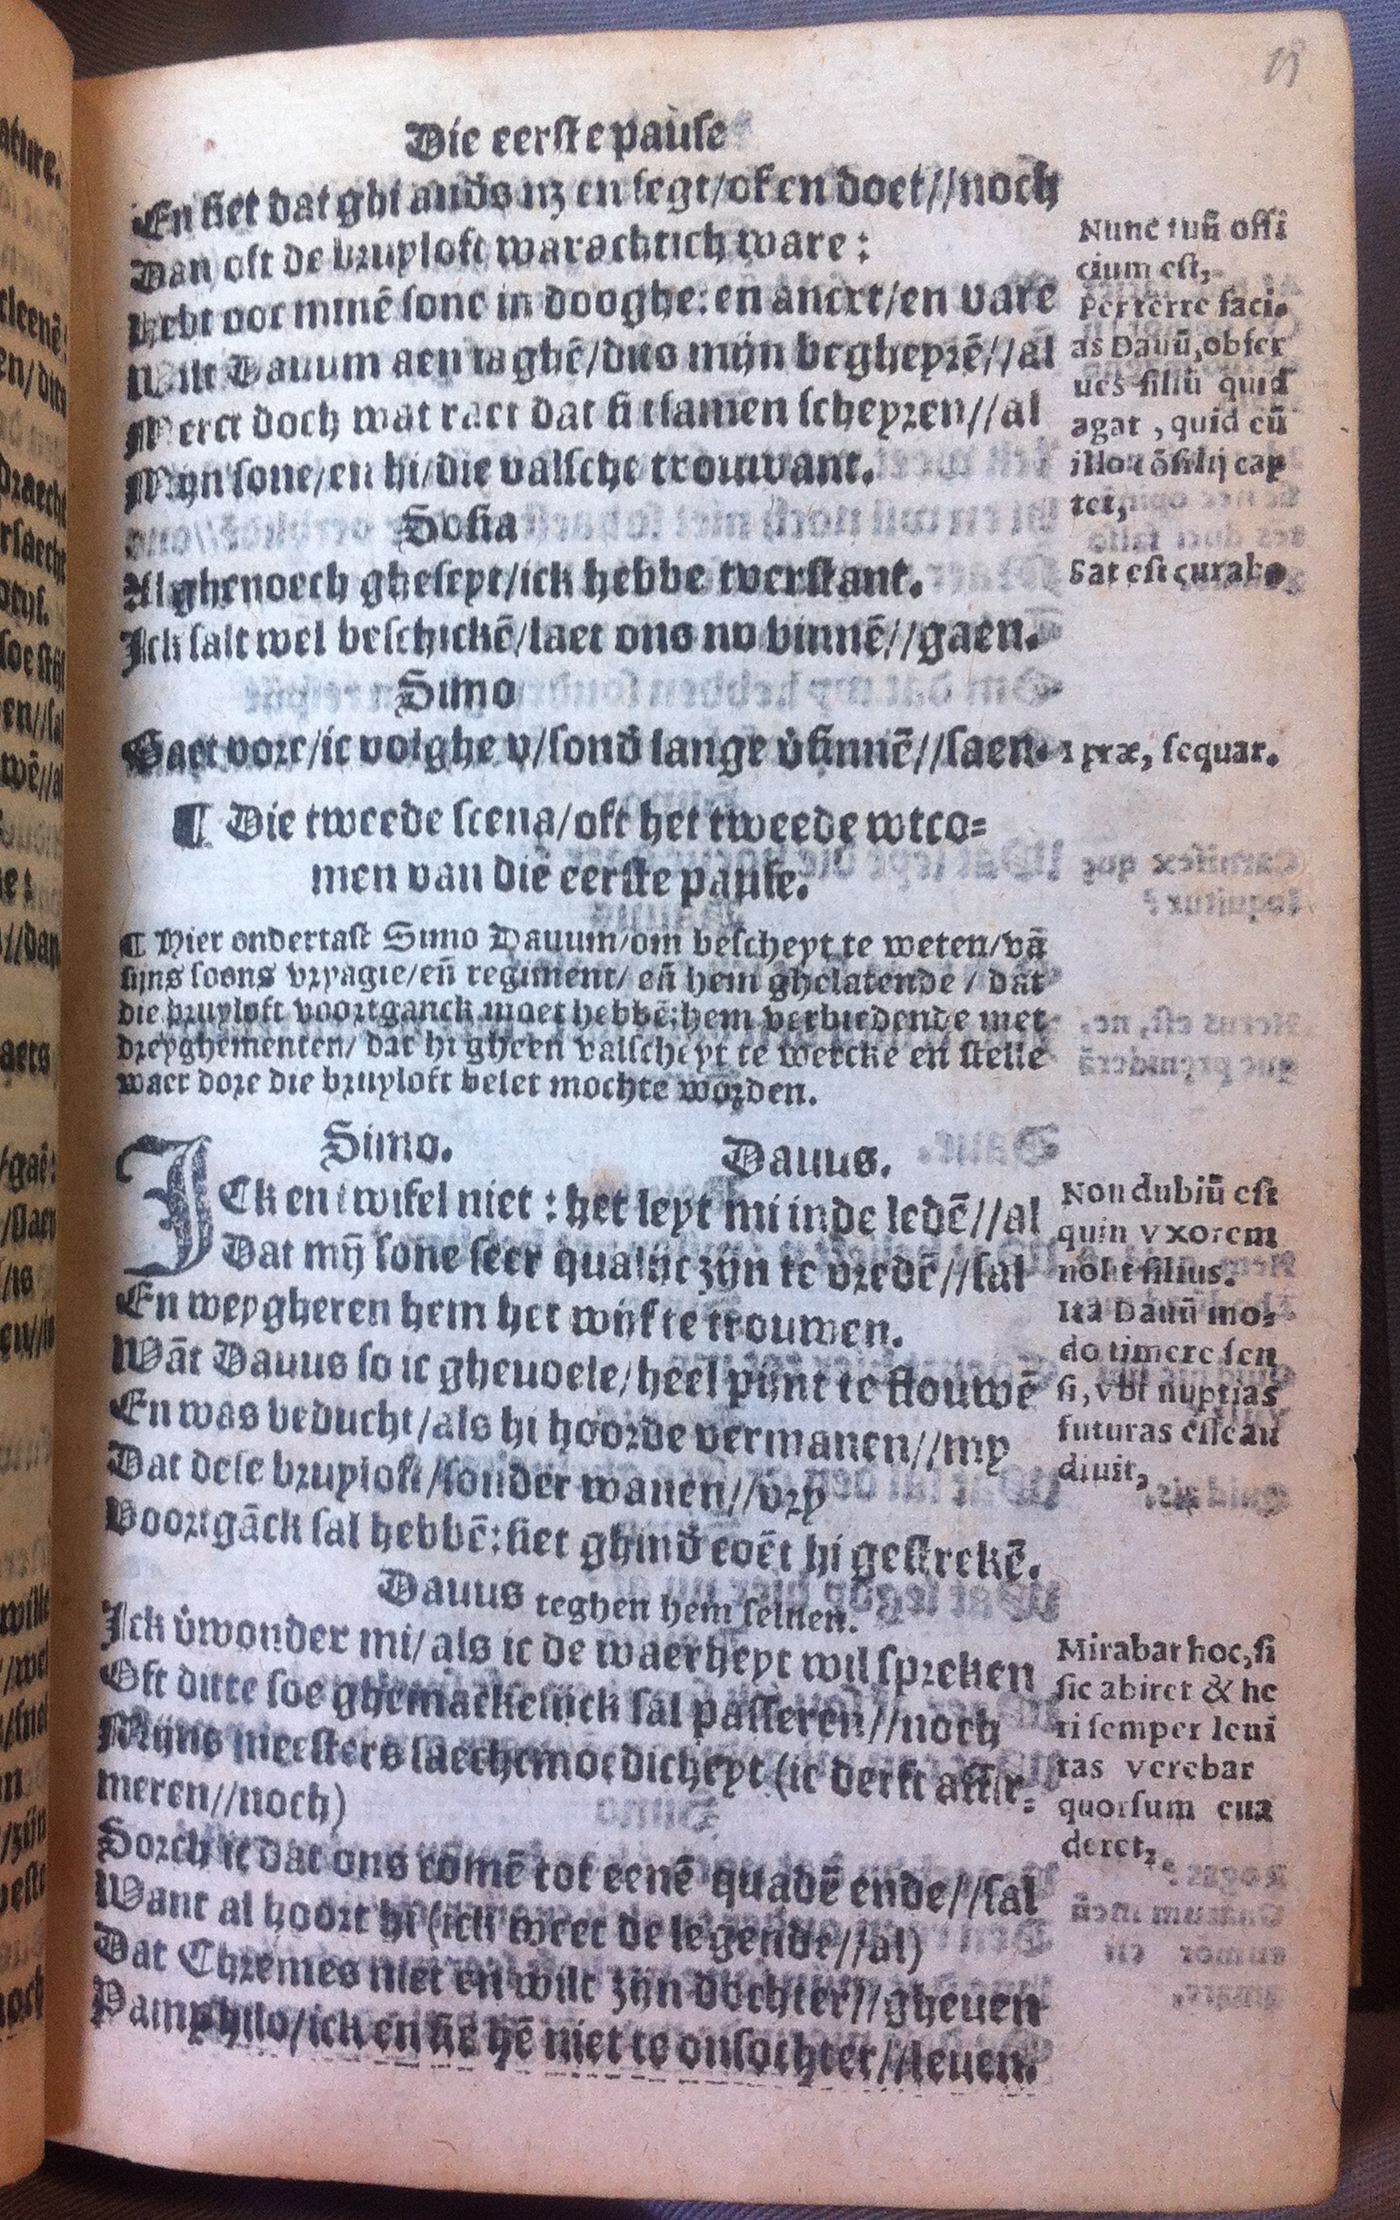 Die eerste pause
En siet dat ghi anders nz en segt/of en doet//noch
Dan oft de bruyloft warachtich ware:
Hebt voor minē sone in dooghe: en anext/en vare
Wilt Dauum aen iaghē/dus mijn begheyrē//al
Merct doch wat raet dat si tsamen scheyren//al
Mijn sone/en hi/die valsche trouwant.
Sosia
Al ghenoech gheseyt/ick hebbe tverstant.
Ick salt wel beschickē/laet ons nv binnē//gaen.
Simo
Gaet vore/ic volghe v/sond lange v̇sinnē//saen.
Nunc tuū offi
cium est,
Perterre faci-
as Dauū, obser
ues filiū quid
agat, quid cū
illo cōsilij cap
tet,
Sat est, curabo
I præ, sequar.
¶ Die tweede scena/oft het tweede wtco=
men van die eerste pause.
¶ Hier ondertast Simo Dauum/om bescheyt te weten/vā
sijns soons vryagie/eñ regiment/ eñ hem ghelatende / dat
die bruyloft voortganck moet hebbē: hem verbiedende met
dreyghementen/ dat hi gheen valscheyt te wercke en stelle
waer dore die bruyloft belet mochte worden.
Simo. Dauus.
ICk en twifel niet: het leyt mi inde ledē//al
Dat mȳ sone seer qualijc zijn te vredē//sal
En weygheren hem het wijf te trouwen.
Wāt Dauus so ic gheuoele/heel pijnt te flouwē
En was beducht/als hi hoorde vermanen//my
Dat dese bruyloft/sonder wanen//vry
Voortgāck sal hebbē: siet ghind coēt hi gestrekē.
Non dubiū est
quin vxorem
nolit filius.
Ita Dauū mo-
do timere sen
si, vbi nuptias
futuras esse au
diuit,
Dauus teghen hem seluen.
Ick v̇wonder mi/als ic de waerheyt wil spreken
Oft ditte soe ghemackelijck sal passeren//noch
Mijns meesters saechtmoedicheyt (ic derft affir=
meren//noch)
Sorch ic dat ons comē tot eenē quadē ende//sal
Want al hoort hi (ick weet de legende//al)
Dat Chremes niet en wilt zijn dochter//gheuen
Pamphilo/ick en sie hē niet te onsochter//leuen.
Mirabar hoc, si
sic abiret & he
ri semper leni
tas verebar
quorsum eua
deret,